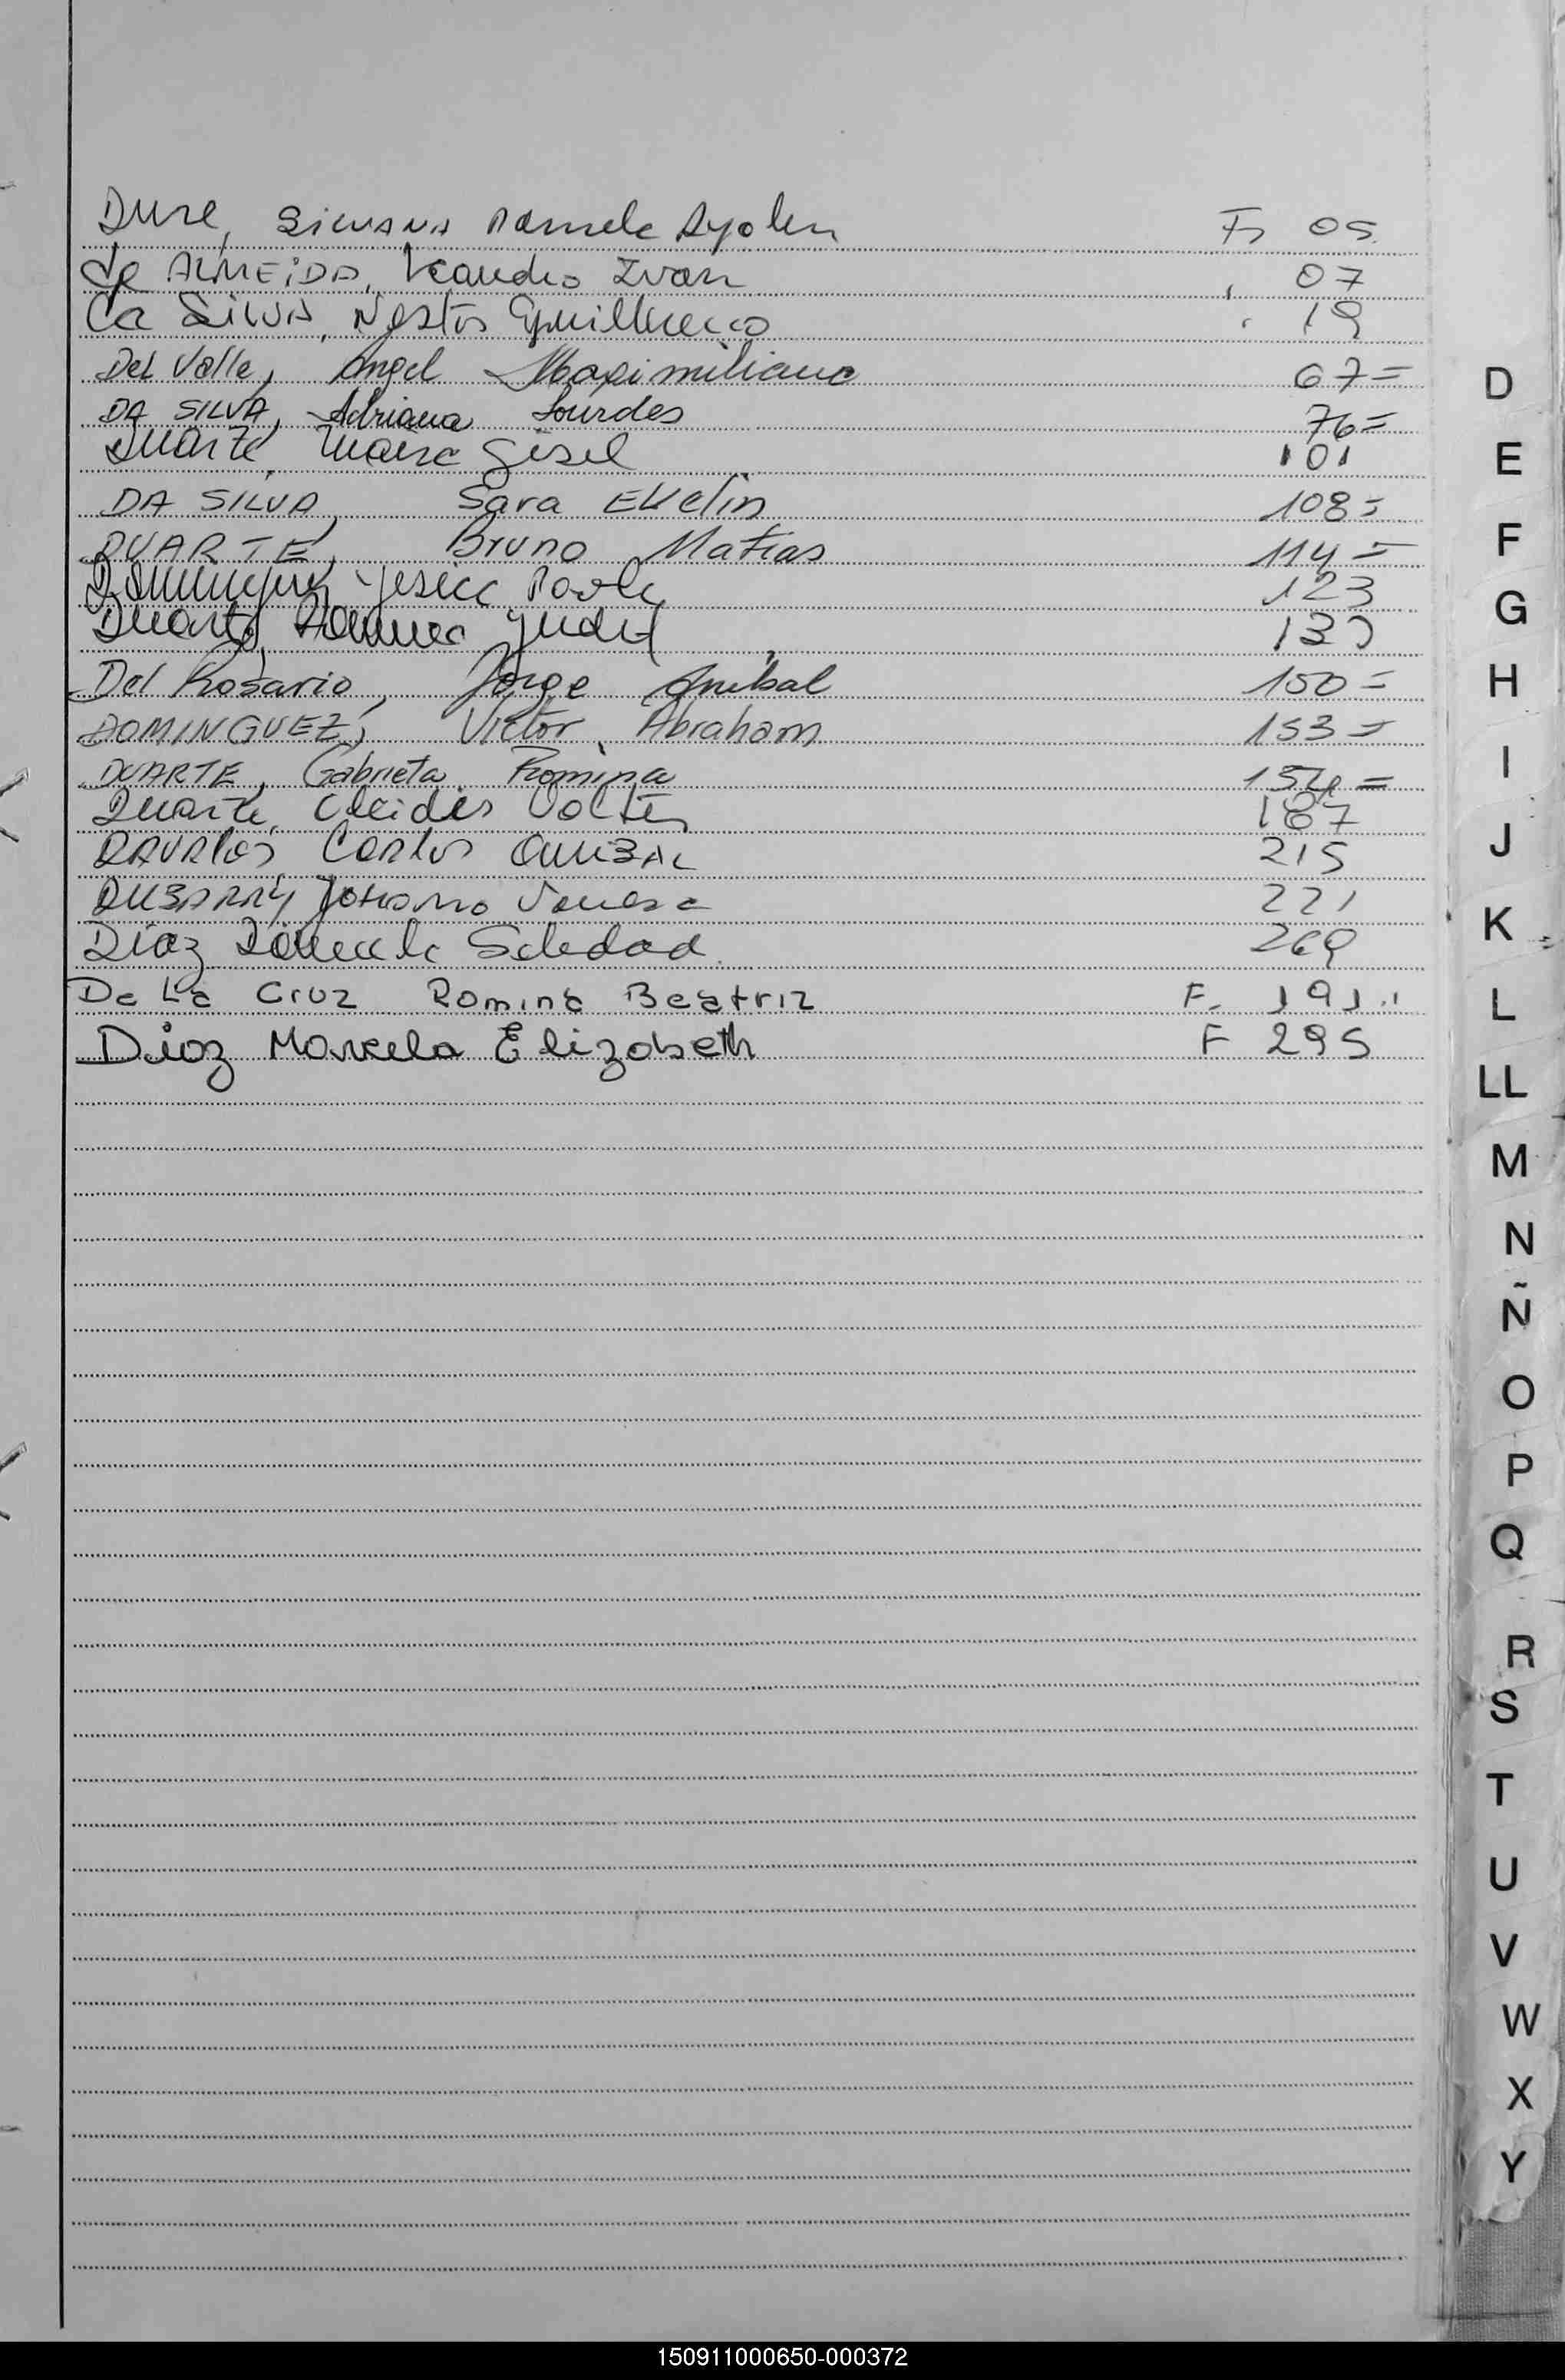 Dure, Silvana Pamela Ayelen Fs 05
de ALMEIDA, Leandro Ivan " 07
Da SILVA, Nestor Guillermo " 19
Del Valle, Angel Maximiliano 67=
DA SILVA, Adriana Lourdes 76=
Duarte, Maira Gisel 101
DA SILVA, Sara EVelin 108=
DUARTE, Bruno Matias 114=
Dominguez, Yesica Paola 123
Duarte, Judit
Del Rosario, Jorge Anibal 150=
DOMINGUEZ, Victor Abraham 153=
DUARTE, Gabriela Romina 154=
Duarte, 187
DAVALOS Carlos ANIBAL 215
DUBARRY Johana Vanesa 221
Diaz Daniela Soledad 269
De La Cruz Romina Beatriz F. 191
Diaz Marcela Elizabeth F 295
D
E
F
G
H
I
J
K
L
LL
M
N
Ñ
O
P
Q
R
S
T
U
V
W
X
Y
150911000650-000372